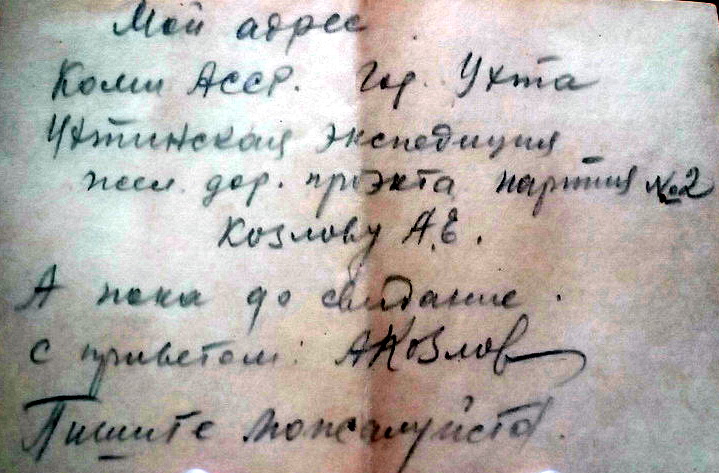 Мой адрес.
Коми АССР. Гор. Ухта
Ухтинская экспедиция
жел. дор. проэкта партия №2
Козлову А.Е.
А пока до свидание.
С приветом: АКозлов
Пишите пожалуйста.